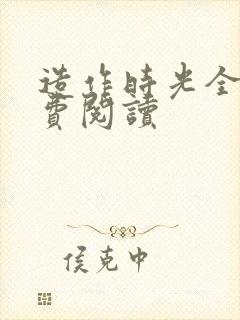 造作時光全
費閱讀
侯克中